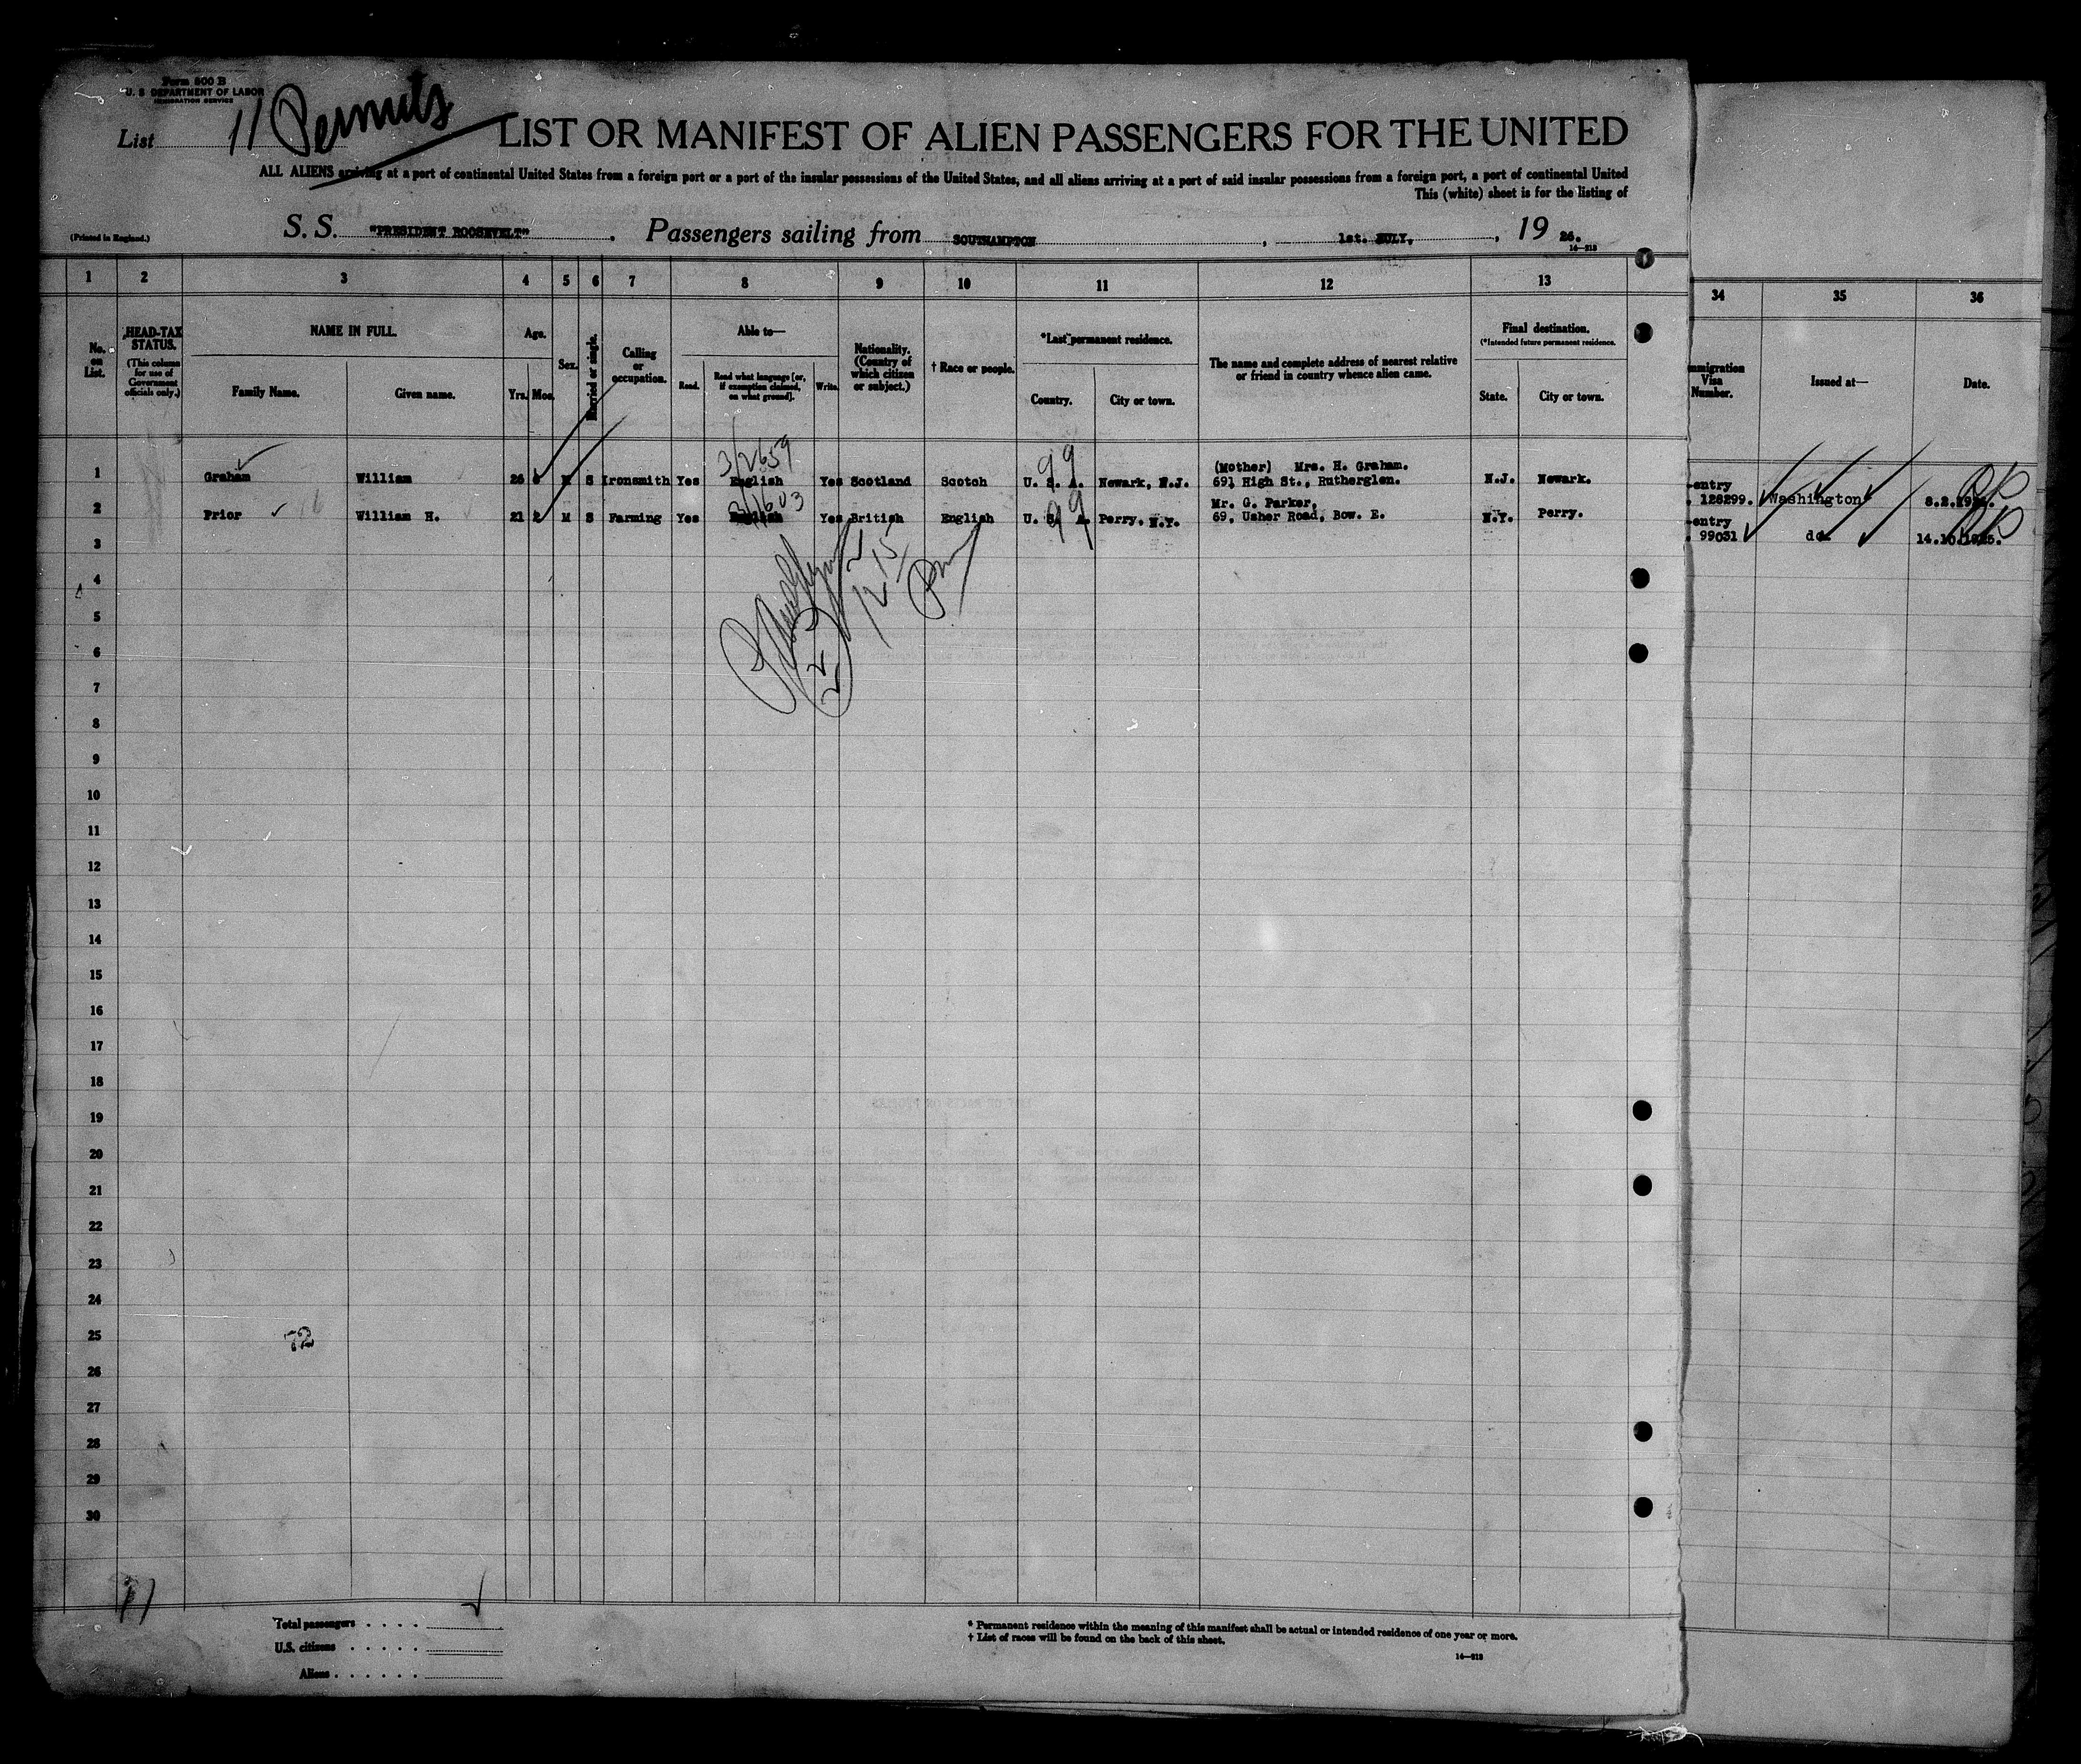 Form 500 B
U. S DEPARTMENT OF LABOR
IMMIGRATION SERVICE
List 11 Permits
LIST OR MANIFEST OF ALIEN PASSENGERS FOR THE UNITED
ALL ALIENS arriving at a port of continental United States from a foreign port or a port of the insular possessions of the United States, and all aliens arriving at a port of said insular possessions from a foreign port, a port of continental United
This (white) sheet is for the listing of
(Printed in England.) S. S. "PRESIDENT ROOSEVELT", Passengers sailing from SOUTHAMPTON, 1st. JULY, 19 26.
14—213
1 2 3 4 5 6 7 8 9 10 11 12 13 34 35 36
No. on List.
HEAD-TAX STATUS.
(This column for use of Government officials only.)
NAME IN FULL.
Family Name. Given name.
Age.
Yrs. Mos.
Sex.
Married or single.
Calling or occupation.
Able to—
Read. Read what language [or, if exemption claimed, on what ground]. Write.
Nationality. (Country of which citizen or subject.)
† Race or people.
*Last permanent residence.
Country. City or town.
The name and complete address of nearest relative or friend in country whence alien came.
Final destination.
(*Intended future permanent residence.
State. City or town.
mmigration Visa Number.
Issued at—
Date.
3/2659 99
(Mother) Mrs. H. Graham.
1 Graham William 26 M S Ironsmith Yes English Yes Scotland Scotch U. S. A. Newark, N.J. 691 High St., Rutherglen. N.J. Newark.
-entry
128299. Washington 8.2.1926.
Mr. G. Parker,
2 Prior 16 William H. 21 2 M S Farming Yes English Yes British English U. S. A. Perry, N.Y. 69, Usher Road, Bow. E. N.Y. Perry.
-entry
99031 do. 14.10.1925.
3
4
5
6
7
8
9
10
11
12
13
14
15
16
17
18
19
20
21
22
23
24
25
72
26
27
28
29
30
Total passengers . . . .
U.S. citizens . . . . .
Aliens . . . . . .
* Permanent residence within the meaning of this manifest shall be actual or intended residence of one year or more.
† List of races will be found on the back of this sheet.
14—213